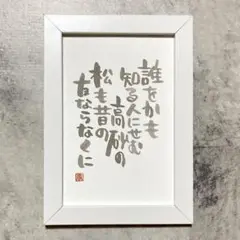 誰をかも
知る人にせむ
高砂の
松も昔の
友ならなくに